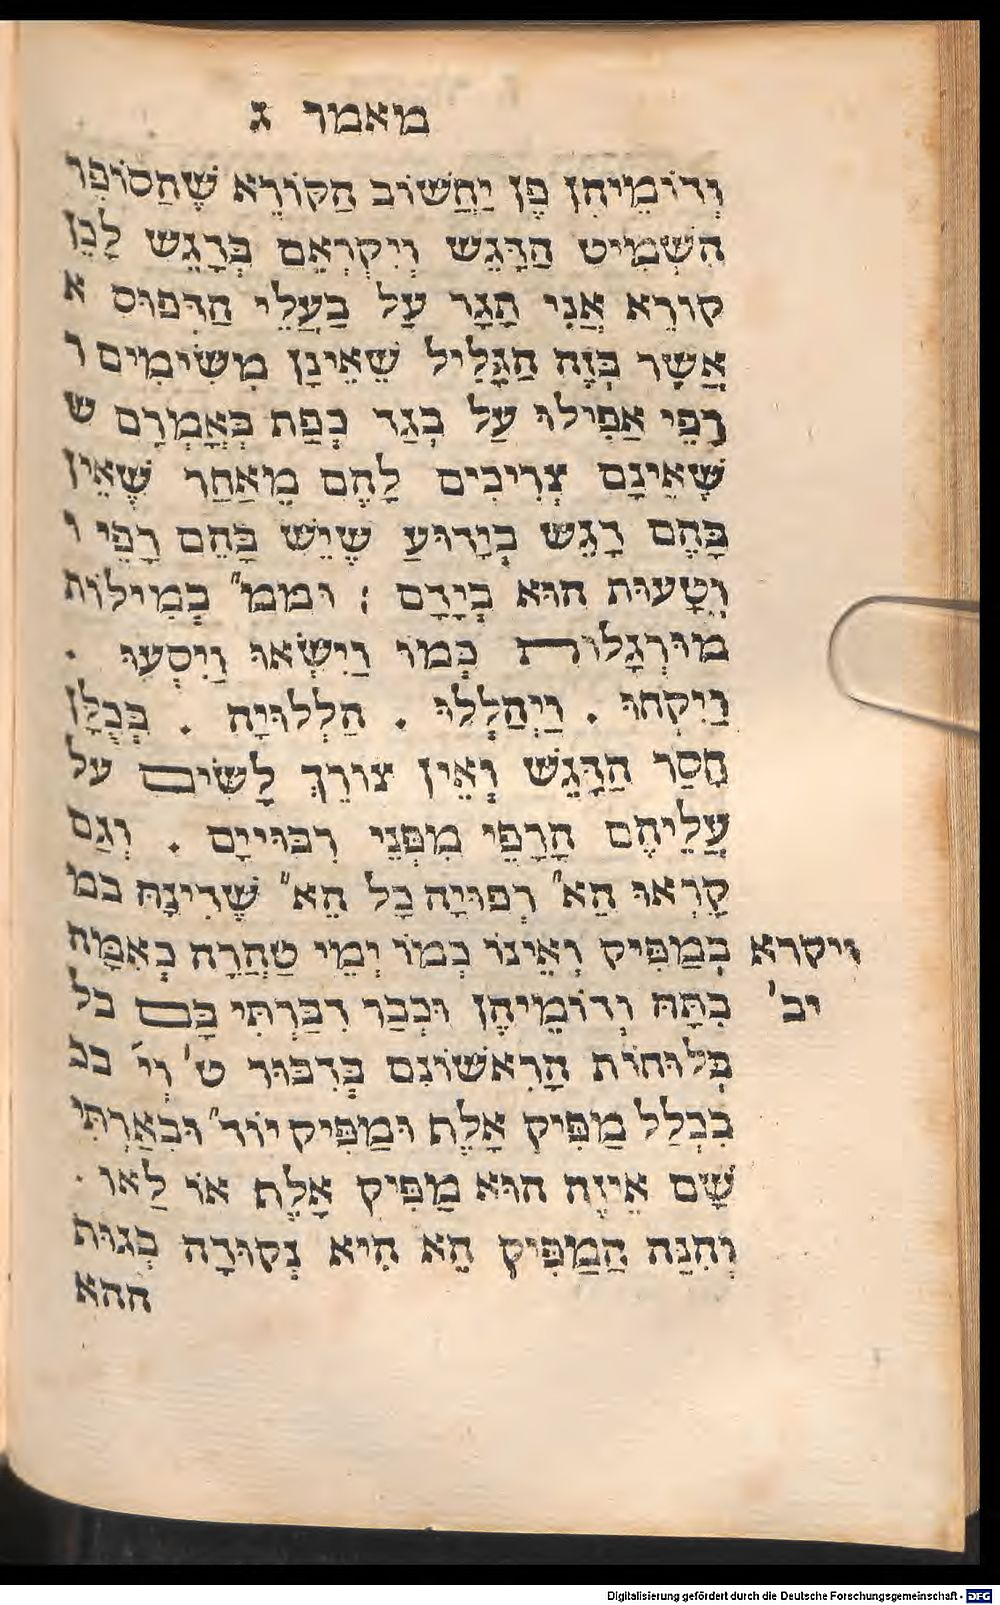 מאמר ג
וְדוֹמֵיהֶן פֶּן יַחֲשׁוֹב הַקּוֹרֵא שֶׁהַסּוֹפֵר
הִשְׁמִיט הַדָּגֵשׁ וְיִקְרָאֵם בְּדָגֵשׁ לָכֵן
קוֹרֵא אֲנִי תָּגָר עַל בַּעֲלֵי הַדְּפוּס א
אֲשֶׁר בְּזֶה הַגָּלִיל שֶׁאֵינָן מְשִׂימִים ר
רָפֵי אֲפִילוּ עַל בְּגַד כְּפַת בְּאָמְרָם ש
שֶׁאֵינָם צְרִיכִים לָהֶם מֵאַחַר שֶׁאֵין
בָּהֶם דָּגֵשׁ בְּיָדוּעַ שֶׁיֵּשׁ בָּהֶם רָפֵי ו
וְטָעוּת הוּא בְּיָדָם : וממ״ בְּמִילוֹת
מוּרְגָּלוֹת כְּמוֹ וַיִּשְׂאוּ וַיִסְעוּ .
וַיִקְחוּ . וַיְהַלְלוּ . הַלְלוּיָהּ . בְּכֻלָּן
חָסַר הַדָּגֵשׁ וְאֵין צוֹרֵךְ לָשִׂים על
עֲלֵיהֶם הָרָפֵי מִפְּנֵי רִבּוּיָים . וְגַם
קָרְאוּ הֵא״ רְפוּיָה כָּל הֵא״ שֶׁדִּינָהּ במ
בְּמַפִּיק וְאֵינוֹ כְּמוֹ יְמֵי טַהֲרָה בְּאִמָּהּ
ויקרא
יב׳
בִּתָּהּ וְדוֹמֵיהֶן וּכְבָר דִּבַּרְתִּי בָּם בל
בְּלוּחוֹת הָרִאשׁוֹנִם בְּדִבּוּר ט׳ וְי׳ בכ
בִּכְלַל מַפִּיק אָלֶת וּמַפִּיק יוֹד״ וּבֵאַרְתִּי
שָׁם אֵיזֶה הוּא מַפִּיק אָלֶת אוֹ לַאו .
וְהִנֵּה הַמַּפִּיק הֵא הִיא נְקוּדָה בְּגוּת
ההא
Digitalisierung gefördert durch die Deutsche Forschungsgemeinschaft - DFG